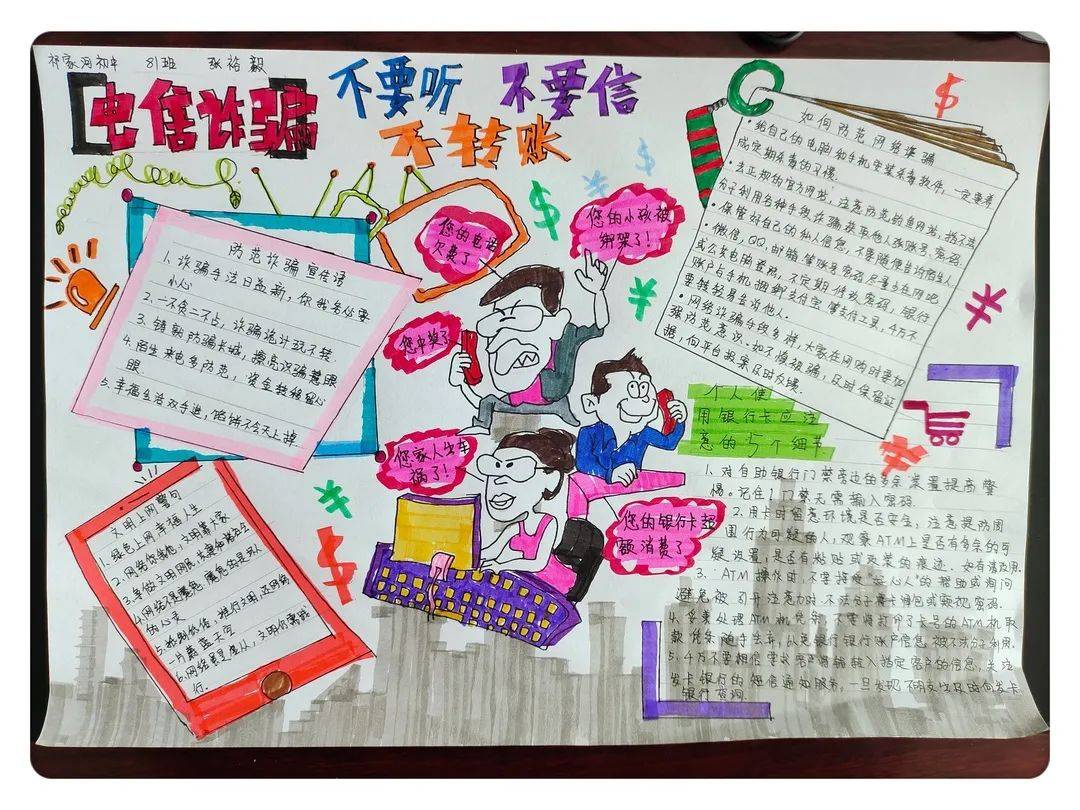 祁家河初中 81班 张裕毅
电信诈骗
不要听 不要信
不转账
防范诈骗宣传语
1、诈骗手法日益新，你我务必要
小心
2、一不贪二不占，诈骗诡计玩不转.
3、铸防骗长城，擦亮识骗慧眼
眼.
4、陌生来电多防范，资金转移留心
5、幸福生活双手造，馅饼不会天上掉
您的电话
欠费了
您的小孩被
绑架了！
您中奖了
您家人出车
祸了！
您的银行卡超
额消费了
如何防范网络诈骗
·给自己的电脑和手机安装杀毒软件，一定要养
成定期杀毒的习惯.
·去正规的官方网站，注意防范钓鱼网站，
分子利用各种手段诈骗获取他人账号、密码.
·保管好自己的私人信息，不要随便告诉陌生人
·微信，QQ，邮箱等账号密码尽量少在网吧
或公共电脑登录，不定期修改密码，银行
账户与手机捆绑支付宝等支付工具，4万不
要轻易告诉他人.
·网络诈骗手段多样，大家在网购时要加
强防范意识.如不慎被骗，及时保留证
据，向平台投案及时反馈.
文明上网警句
1、绿色上网幸福人生
2、网络你我他，文明靠大家
3、争做文明网民，共建和谐社会
4、网络不是魔鬼，魔鬼的是别人
的心灵
5、抵制低俗，推行文明，还网络
一片蔚蓝天空
6、网络是是虚从，文明你需践
行.
个人使
用银行卡应注
意的5个细节
1、对自助银行门禁旁边的多余装置提高警
惕。记住：门禁无需输入密码.
2、用卡时留意环境是否安全，注意提防周
围行为可疑的人，观察ATM上是否有多余的可
疑设置，是否有粘贴或改装的痕迹.
3、ATM操作时，不要接受“云心人”的帮助或询问
避免被引开注意力时不法分子乘卡掉包或窥视密码.
4、妥善处理ATM机凭条，不要将打印了卡号的ATM机取
款凭条随手丢弃，以免银行银行账户信息被不法分子利用.
5、4万不要相信要求客户将钱转入指定客户的信息，关注
发卡银行的短信通知服务，一旦发现不明支出及时向发卡
银行咨询.